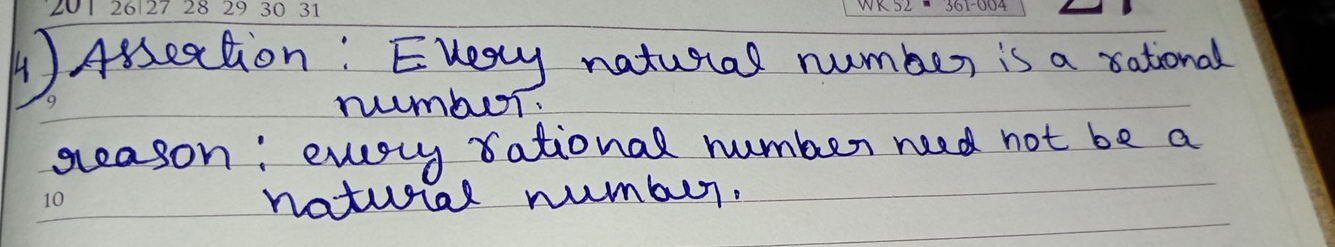 20 | 26 27 28 29 30 31
WK 52 • 361-004
4) Assertion : Every natural number is a rational
9
number.
reason : every rational number need not be a
10 natural number.